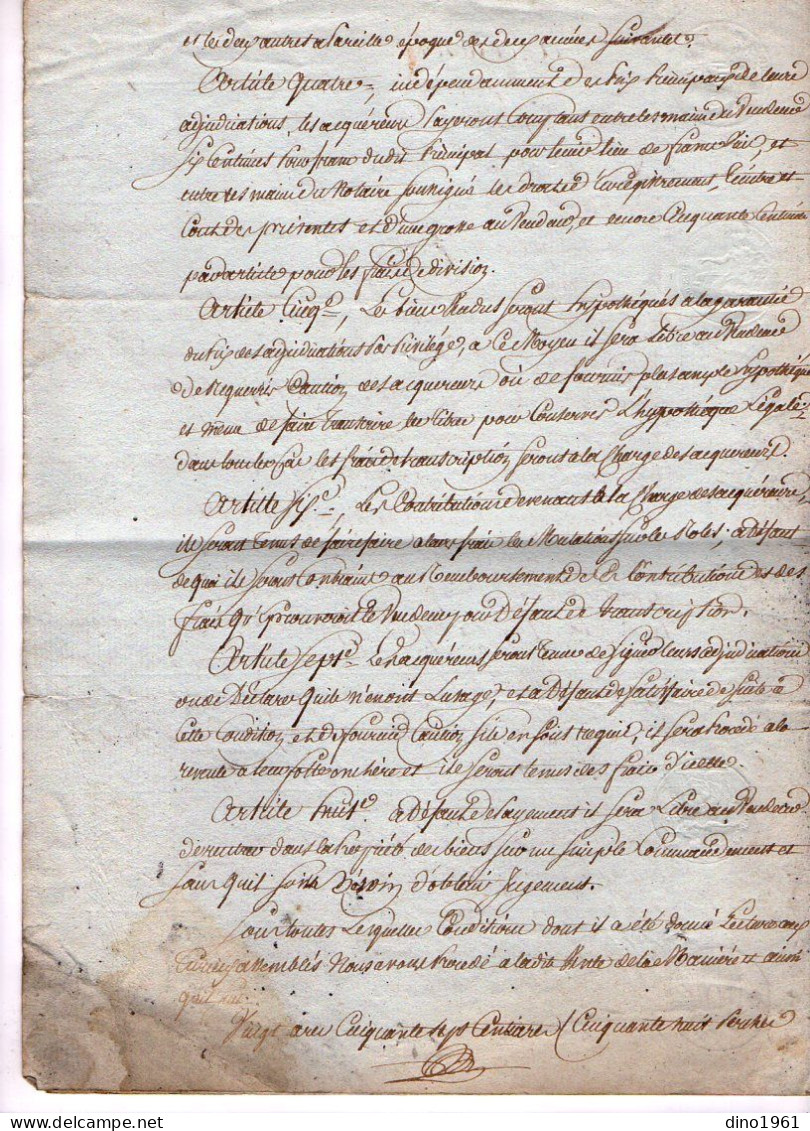 et les deux autres a Pareille époque des deux années suivantes.
Article Quatre, indépendamment des prix principaux de leurs
adjudications, les acquéreurs payeront Comptant entre les mains du Vendeur
Six Centimes par franc dudit Principal pour tenir lieu de francs Vin, et
entre les mains du Notaire soussigné les droits d'Enregistrement, timbre et
Cout des présentes et d'une grosse au Vendeur, et encore Cinquante Centimes
par article pour les frais de division.
Article Cinq.e, Les biens Vendus seront hypothéqués a la garantie
du prix des adjudications Par Privilége, a Ce Moyen il sera Libre au Vendeur
de Requerir Caution des acquereurs où de fournir plus ample hypothèque
et meme de faire transcrire les titres pour Conserver L'hypothèque Légale,
dans tous les Cas les frais de transcription seront a la Charge des acquereurs.
Article six.e, Les Contributions devenant a la Charge des acquéreurs,
ils seront tenus de faire faire a leurs frais les Mutations sur les Roles, a défaut
de quoi ils seront Contraints au Remboursement des Contributions et des
frais qu'éprouveroit le Vendeur pour Défaut de transcription.
Article sept.e Les acquéreurs seront tenus de signer leurs adjudications
ou de Déclarer qu'ils n'en ont L'usage, et a Défaut de satisfaire de suite a
Cette Condition et de fournir Caution s'ils en sont requis, il sera Procédé a la
revente a leur folle enchère et ils seront tenus des frais d'icelle.
Article huit.e a Défaut de Payement il sera Libre au Vendeur
de rentrer dans la Propriété des biens sur un simple Commandement et
sans qu'il soit Besoin d'obtenir Jugement.
Sous toutes Lesquelles Conditions dont il a été donné Lecture aux
assemblés Nous avons Procédé a ladite Vente de la Manière et ainsi
qu'il suit.
Vingt ares Cinquante sept Centiares (Cinquante huit Perches
dino1961